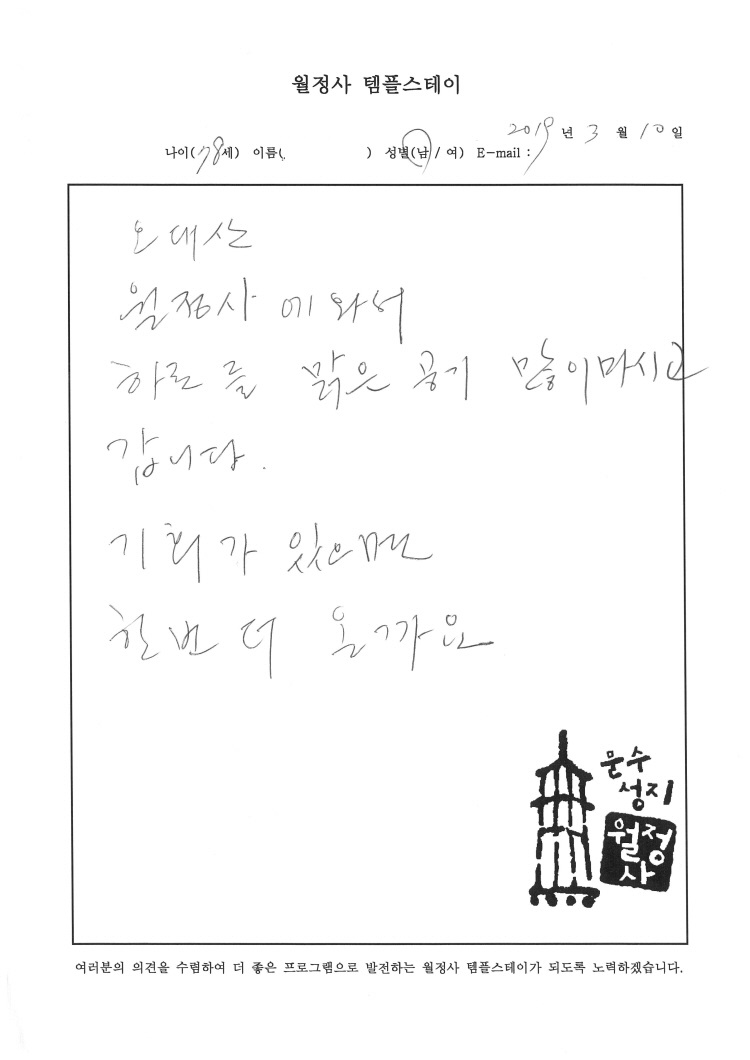 월정사 템플스테이
2019 년 3 월 10 일
나이( 78 세) 이름( ) 성별(남 / 여) E-mail :
오대산
월정사에 와서
하루를 맑은 공기 많이마시고
갑니다.
기회가 있으면
한번 더 올까요
문수
성지
월정
사
여러분의 의견을 수렴하여 더 좋은 프로그램으로 발전하는 월정사 템플스테이가 되도록 노력하겠습니다.